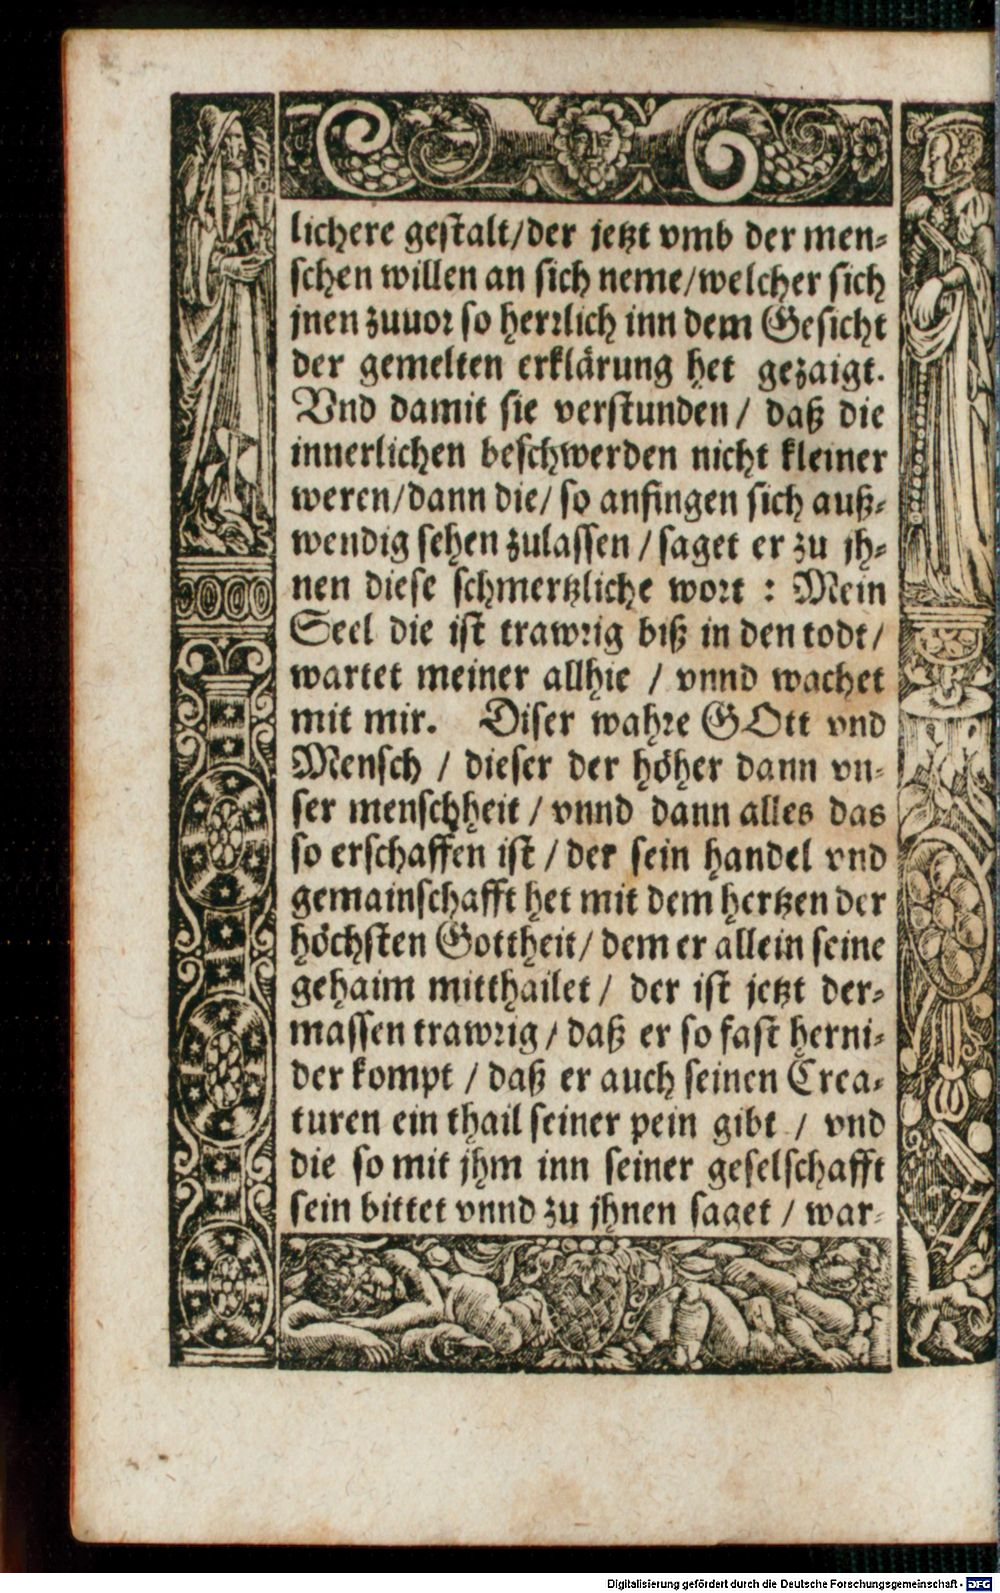 lichere gestalt/der jetzt vmb der men⸗
schen willen an sich neme/welcher sich
jnen zuuor so herrlich inn dem Gesicht
der gemelten erklärung het gezaigt.
Vnd damit sie verstunden/ daß die
innerlichen beschwerden nicht kleiner
weren/dann die/ so anfingen sich auß⸗
wendig sehen zulassen / saget er zu jh⸗
nen diese schmertzliche wort : Mein
Seel die ist trawrig biß in den todt/
wartet meiner allhie / vnnd wachet
mit mir. Diser wahre GOtt vnd
Mensch / dieser der höher dann vn⸗
ser menschheit / vnnd dann alles das
so erschaffen ist / der sein handel vnd
gemainschafft het mit dem hertzen der
höchsten Gottheit/ dem er allein seine
gehaim mitthailet/ der ist jetzt der⸗
massen trawrig/ daß er so fast herni⸗
der kompt / daß er auch seinen Crea⸗
turen ein thail seiner pein gibt / vnd
die so mit jhm inn seiner geselschafft
sein bittet vnnd zu jhnen saget / war⸗
Digitalisierung gefördert durch die Deutsche Forschungsgemeinschaft - DFG